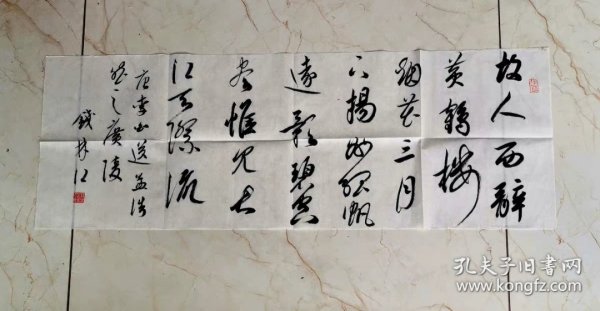 故人西辞
黄鹤楼
烟花三月
下揚州孤帆
遠影碧空
尽惟见長
江天際流
唐李白送孟浩
然之廣陵
錢林江
孔夫子旧书网
www.kongfz.com